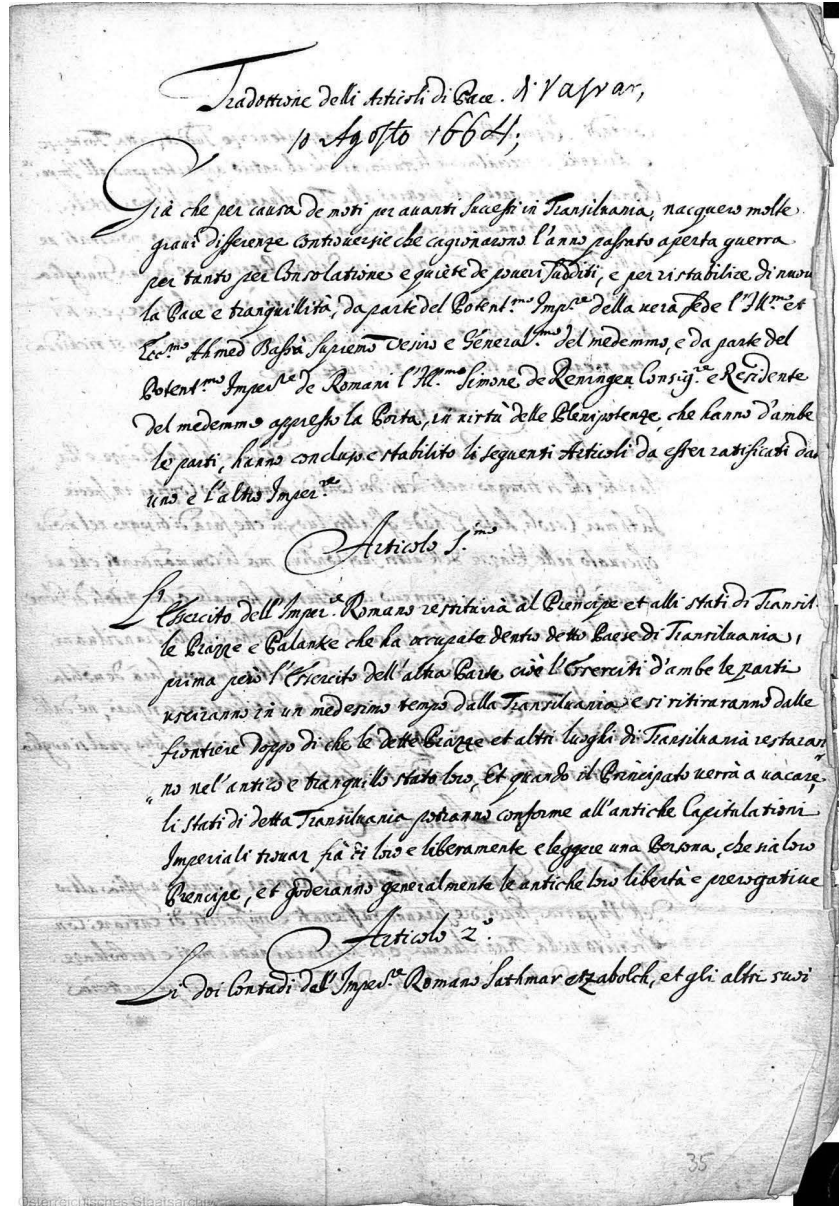 Tradottione delli Articoli di Pace. di Vasvar,
10 Agosto 1664;
Già che per causa de moti per auanti successi in Transiluania, nacquero molte
graui differenze controuersie che cagionarono l'anno passato aperta guerra
per tanto per Consolatione e quiete de poueri sudditi, e per ristabilire di nuouo
la Pace e tranquillità, da parte del Potent.mo Imp.re della uera sede l'Ill.mo et
Ecc.mo Ahmed Bassà supremo Vesiro e General.mo del medemmo, e da parte del
Potent.mo Imper.re de Romani l'Ill.mo Simone de Reningen Consig.re e Residente
del medemmo appresso la Porta, in uirtù delle Plenipotenze, che hanno d'ambe
le parti, hanno concluso e stabilito li seguenti Articoli da esser ratificati da
uno e l'altro Imper.re
Articolo p.mo
L'Esercito dell'Imper.re Romano restituirà al Prencipe et alli stati di Transil:
le Piazze e Palanke che ha occupate dentro detto Paese di Transiluania,
prima però l'Esercito dell'altra Parte cioè l'Eserciti d'ambe le parti
usciranno in un medesimo tempo dalla Transiluania e si ritiraranno dalle
frontiere doppo di che le dette Piazze et altri luoghi di Transiluania restaran
no nel'antico e tranquillo stato loro, Et quando il Principato uerrà a uacare,
li stati di detta Transiluania potranno conforme all'antiche Capitulationi
Imperiali trouar frà di loro e liberamente eleggere una Persona, che sia loro
Prencipe, et goderanno generalmente le antiche loro libertà e prerogatiue
Articolo 2.o
Li doi Contadi dell'Imper.re Romano Sathmar et Zabolch, et gli altri suoi
35
Österreichisches Staatsarchiv